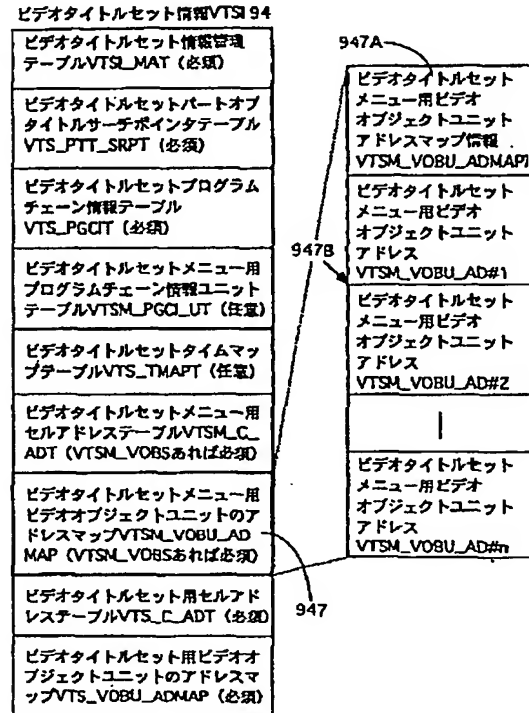 ビデオタイトルセット情報VTSI 94
ビデオタイトルセット情報管理
テーブルVTSI_MAT (必須)
ビデオタイトルセットパートオブ
タイトルサーチポインタテーブル
VTS_PTT_SRPT (必須)
ビデオタイトルセットプログラム
チェーン情報テーブル
VTS_PGCIT (必須)
ビデオタイトルセットメニュー用
プログラムチェーン情報ユニット
テーブルVTSM_PGCI_UT (任意)
ビデオタイトルセットタイムマッ
プテーブルVTS_TMAPT (任意)
ビデオタイトルセットメニュー用
セルアドレステーブルVTSM_C_
ADT (VTSM_VOBSあれば必須)
ビデオタイトルセットメニュー用
ビデオオブジェクトユニットのア
ドレスマップVTSM_VOBU_AD
MAP (VTSM_VOBSあれば必須)
ビデオタイトルセット用セルアド
レステーブルVTS_C_ADT (必須)
ビデオタイトルセット用ビデオオ
ブジェクトユニットのアドレスマ
ップVTS_VOBU_ADMAP (必須)
947
947A
ビデオタイトルセット
メニュー用ビデオ
オブジェクトユニット
アドレスマップ情報
VTSM_VOBU_ADMAPI
ビデオタイトルセット
メニュー用ビデオ
オブジェクトユニット
アドレス
VTSM_VOBU_AD#1
947B
ビデオタイトルセット
メニュー用ビデオ
オブジェクトユニット
アドレス
VTSM_VOBU_AD#2
ビデオタイトルセット
メニュー用ビデオ
オブジェクトユニット
アドレス
VTSM_VOBU_AD#n